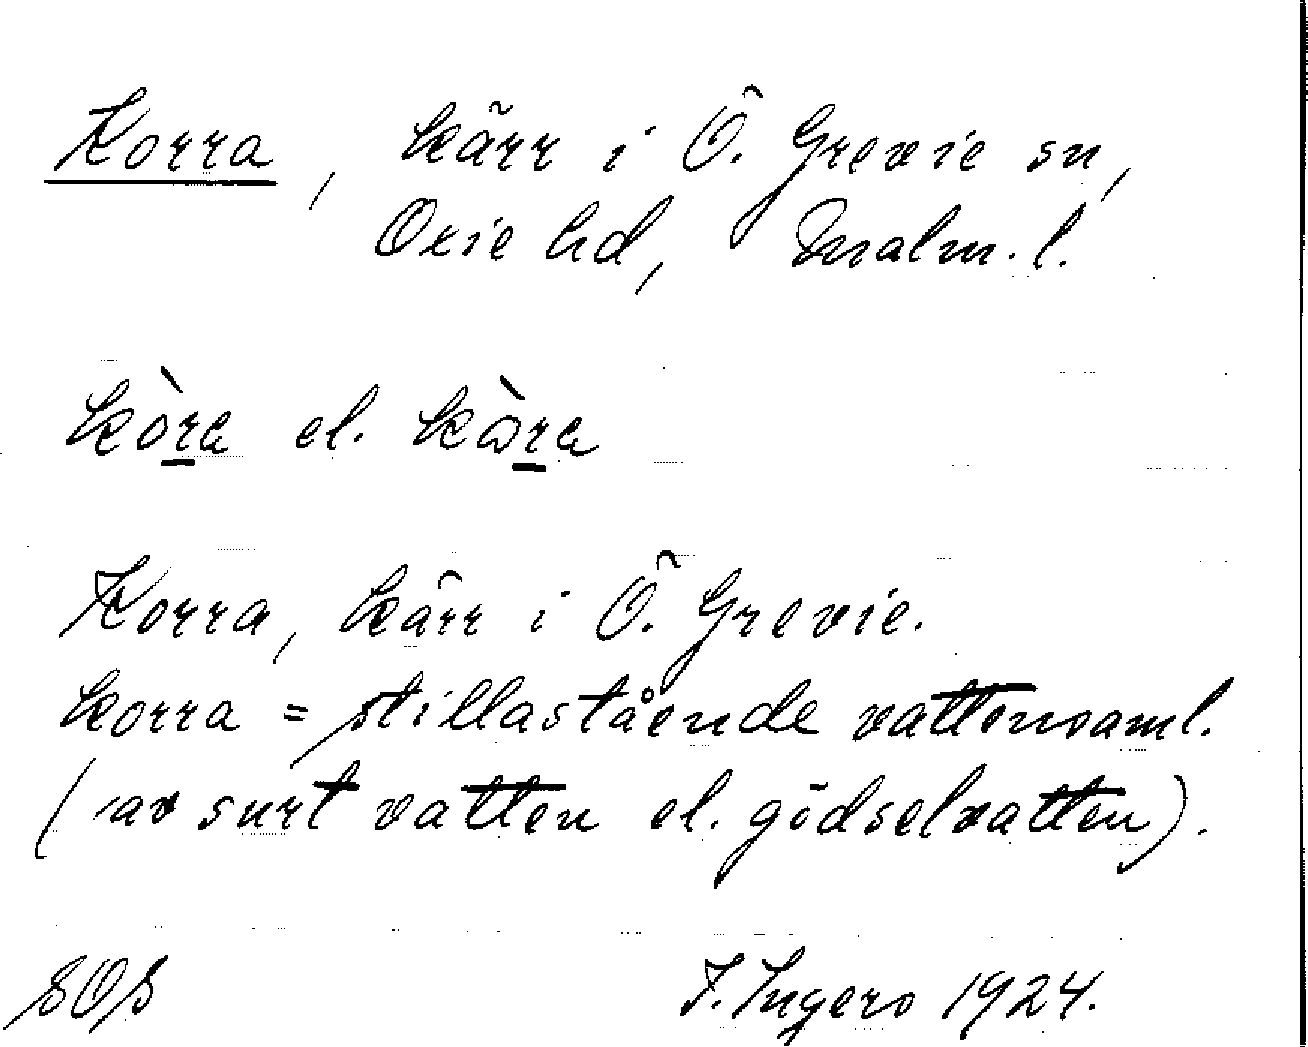 Korra, kärr i Ö. Grevie sn,
Oxie hd, Malm. l.
kòra el. kàra
Korra, kärr i Ö. Grevie.
korra = stillastående vattensaml.
(av surt vatten el. gödselvatten).
SOS I. Ingers 1924.